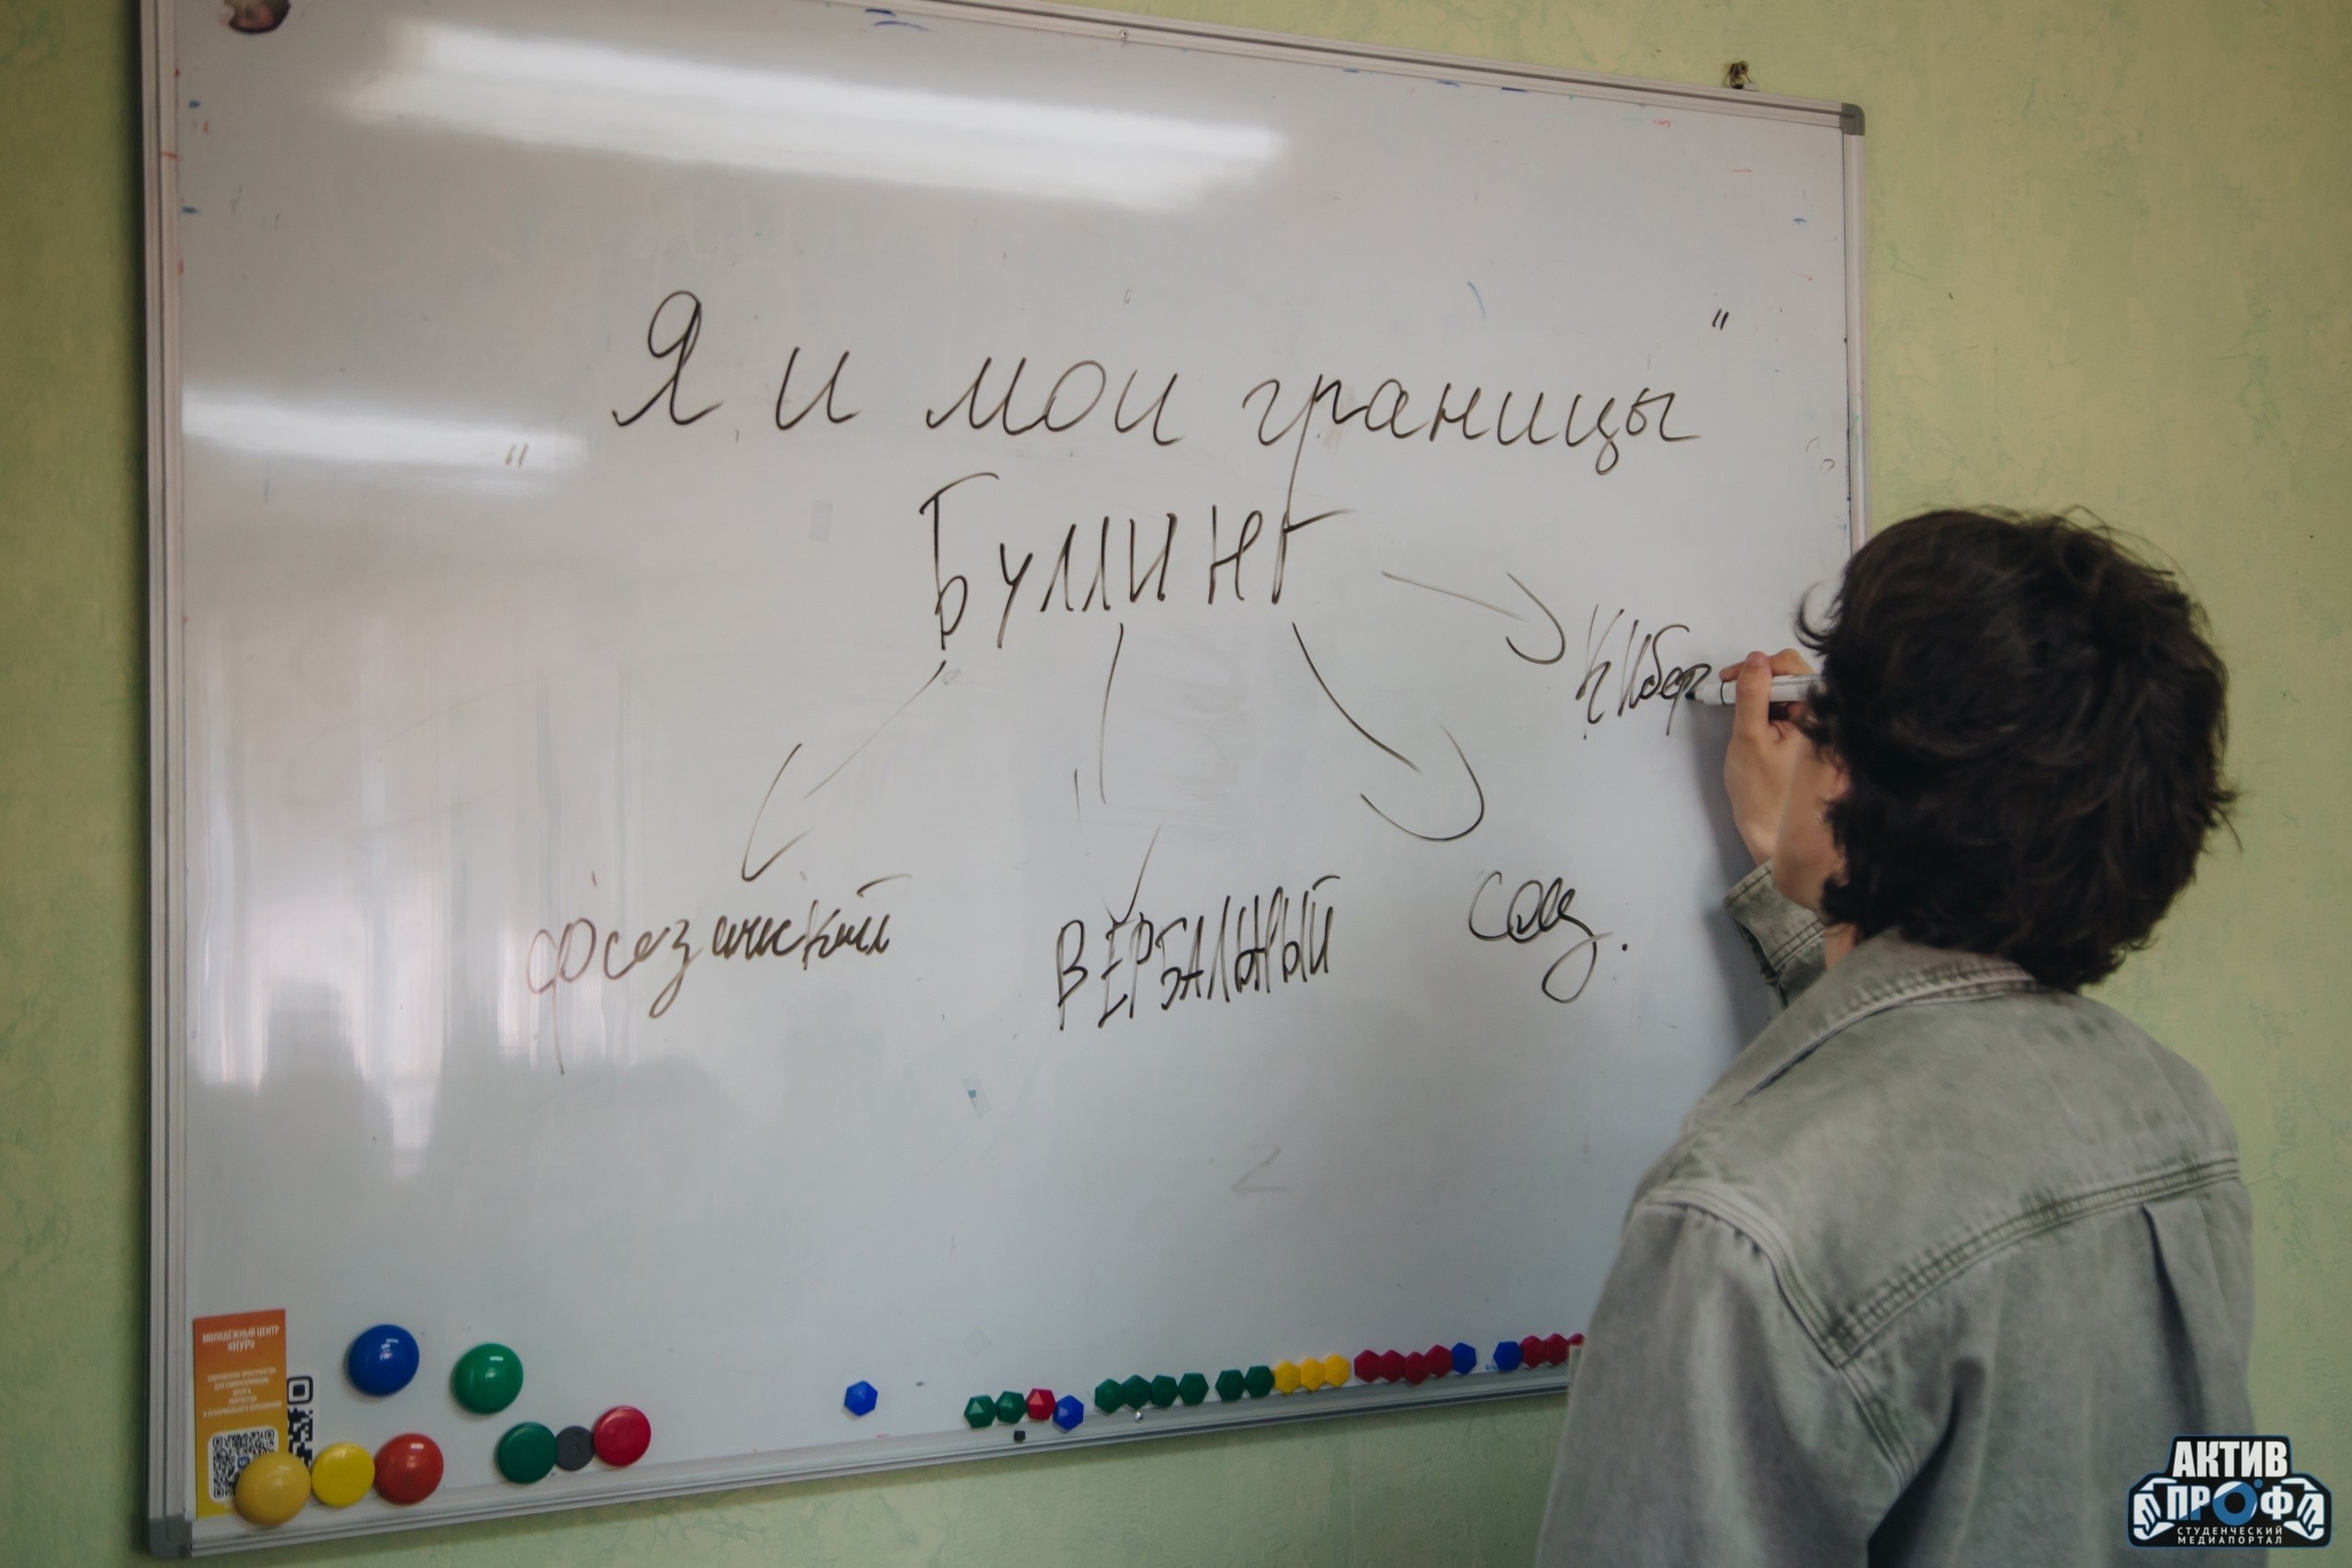 "Я и мои границы"
Буллинг
Кибер
физический
ВЕРБАЛЬНЫЙ
соц.
МОЛОДЁЖНЫЙ ЦЕНТР
«НУР»
АКТИВ
ПРОФ
СТУДЕНЧЕСКИЙ
МЕДИАПОРТАЛ